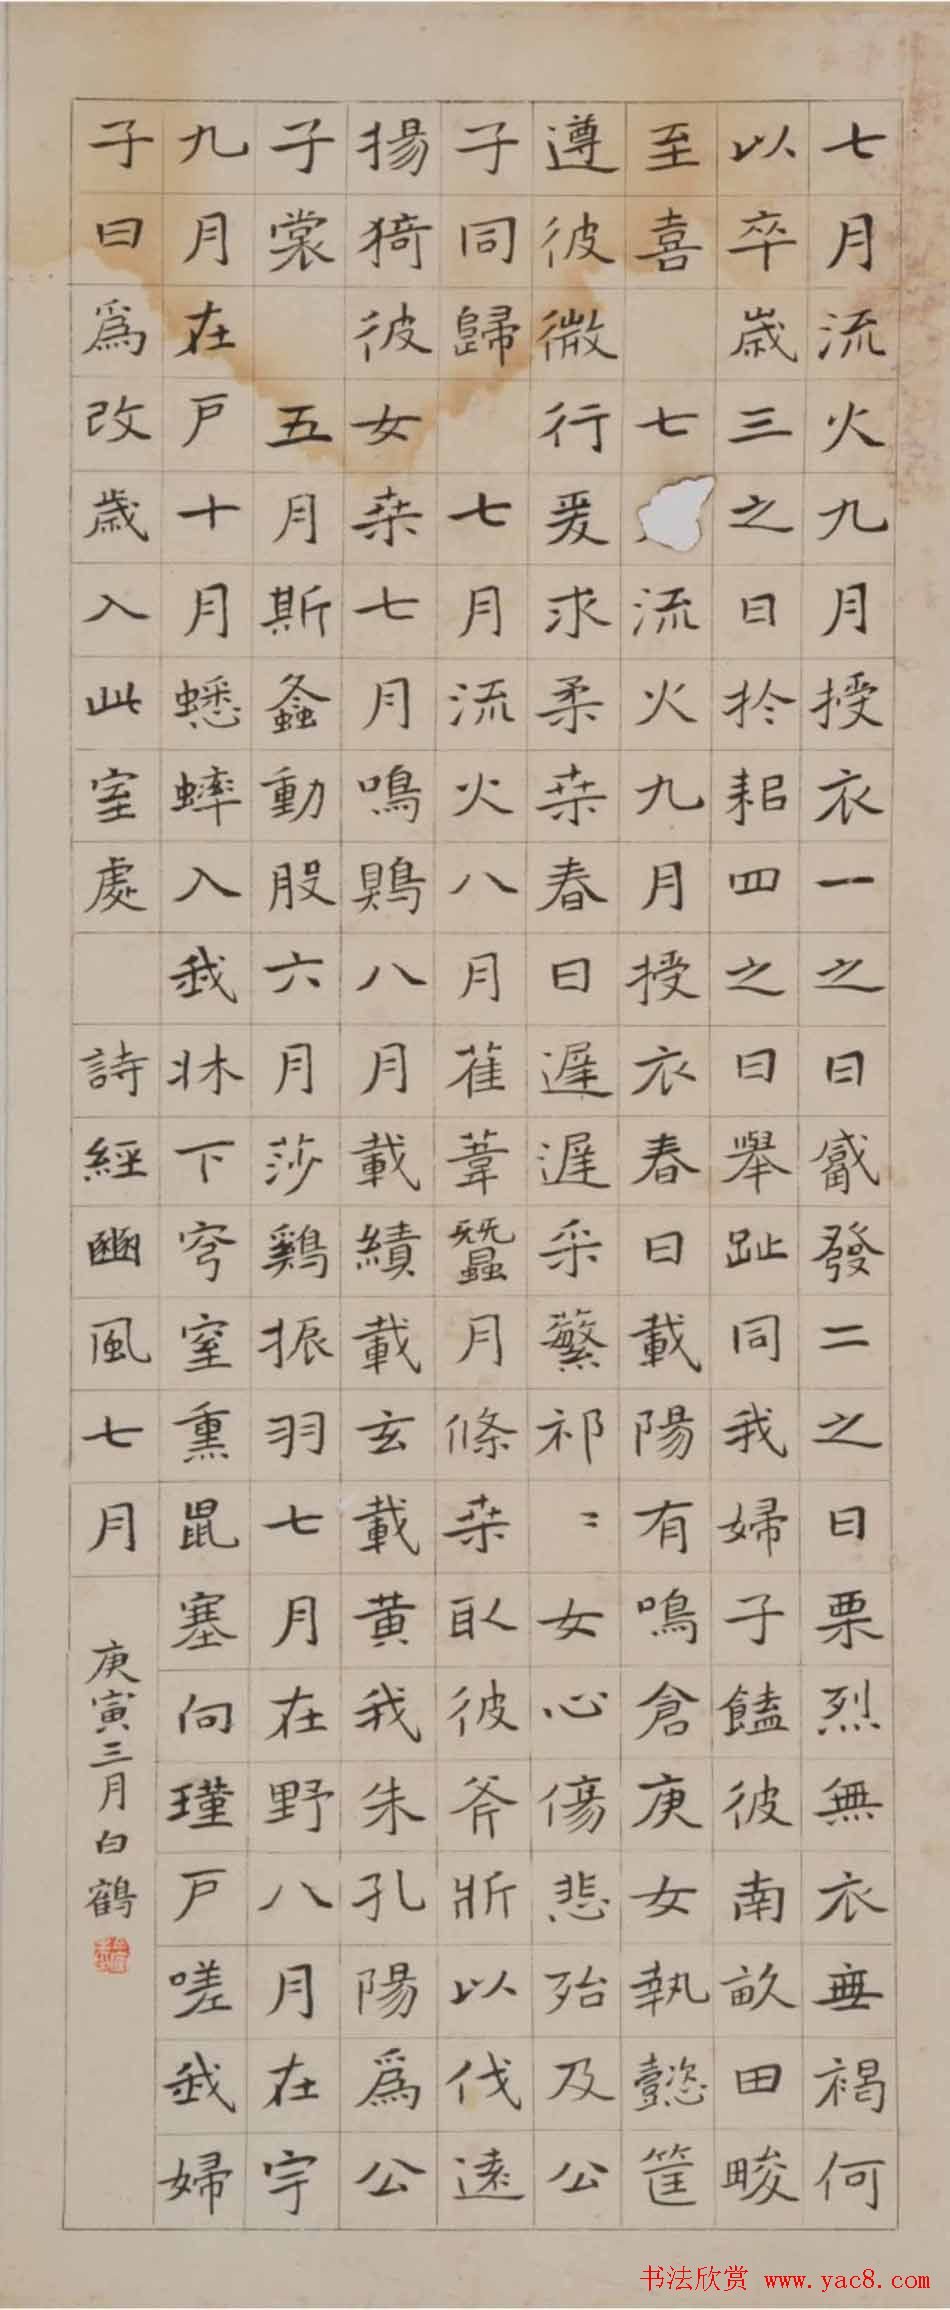 七月流火九月授衣一之日觱發二之日栗烈無衣無褐何
以卒歲三之日於耜四之日舉趾同我婦子饁彼南畝田畯
至喜 七 流火九月授衣春日載陽有鳴倉庚女執懿筐
遵彼微行爰求柔桑春日遲遲采蘩祁〻女心傷悲殆及公
子同歸 七月流火八月萑葦蠶月條桑取彼斧斨以伐遠
揚猗彼女桑七月鳴鵙八月載績載玄載黃我朱孔陽爲公
子裳 五月斯螽動股六月莎鷄振羽七月在野八月在宇
九月在戶十月蟋蟀入我牀下穹窒熏鼠塞向墐戶嗟我婦
子曰爲改歲入此室處 詩經豳風七月
庚寅三月白鶴
书法欣赏 www.yac8.com